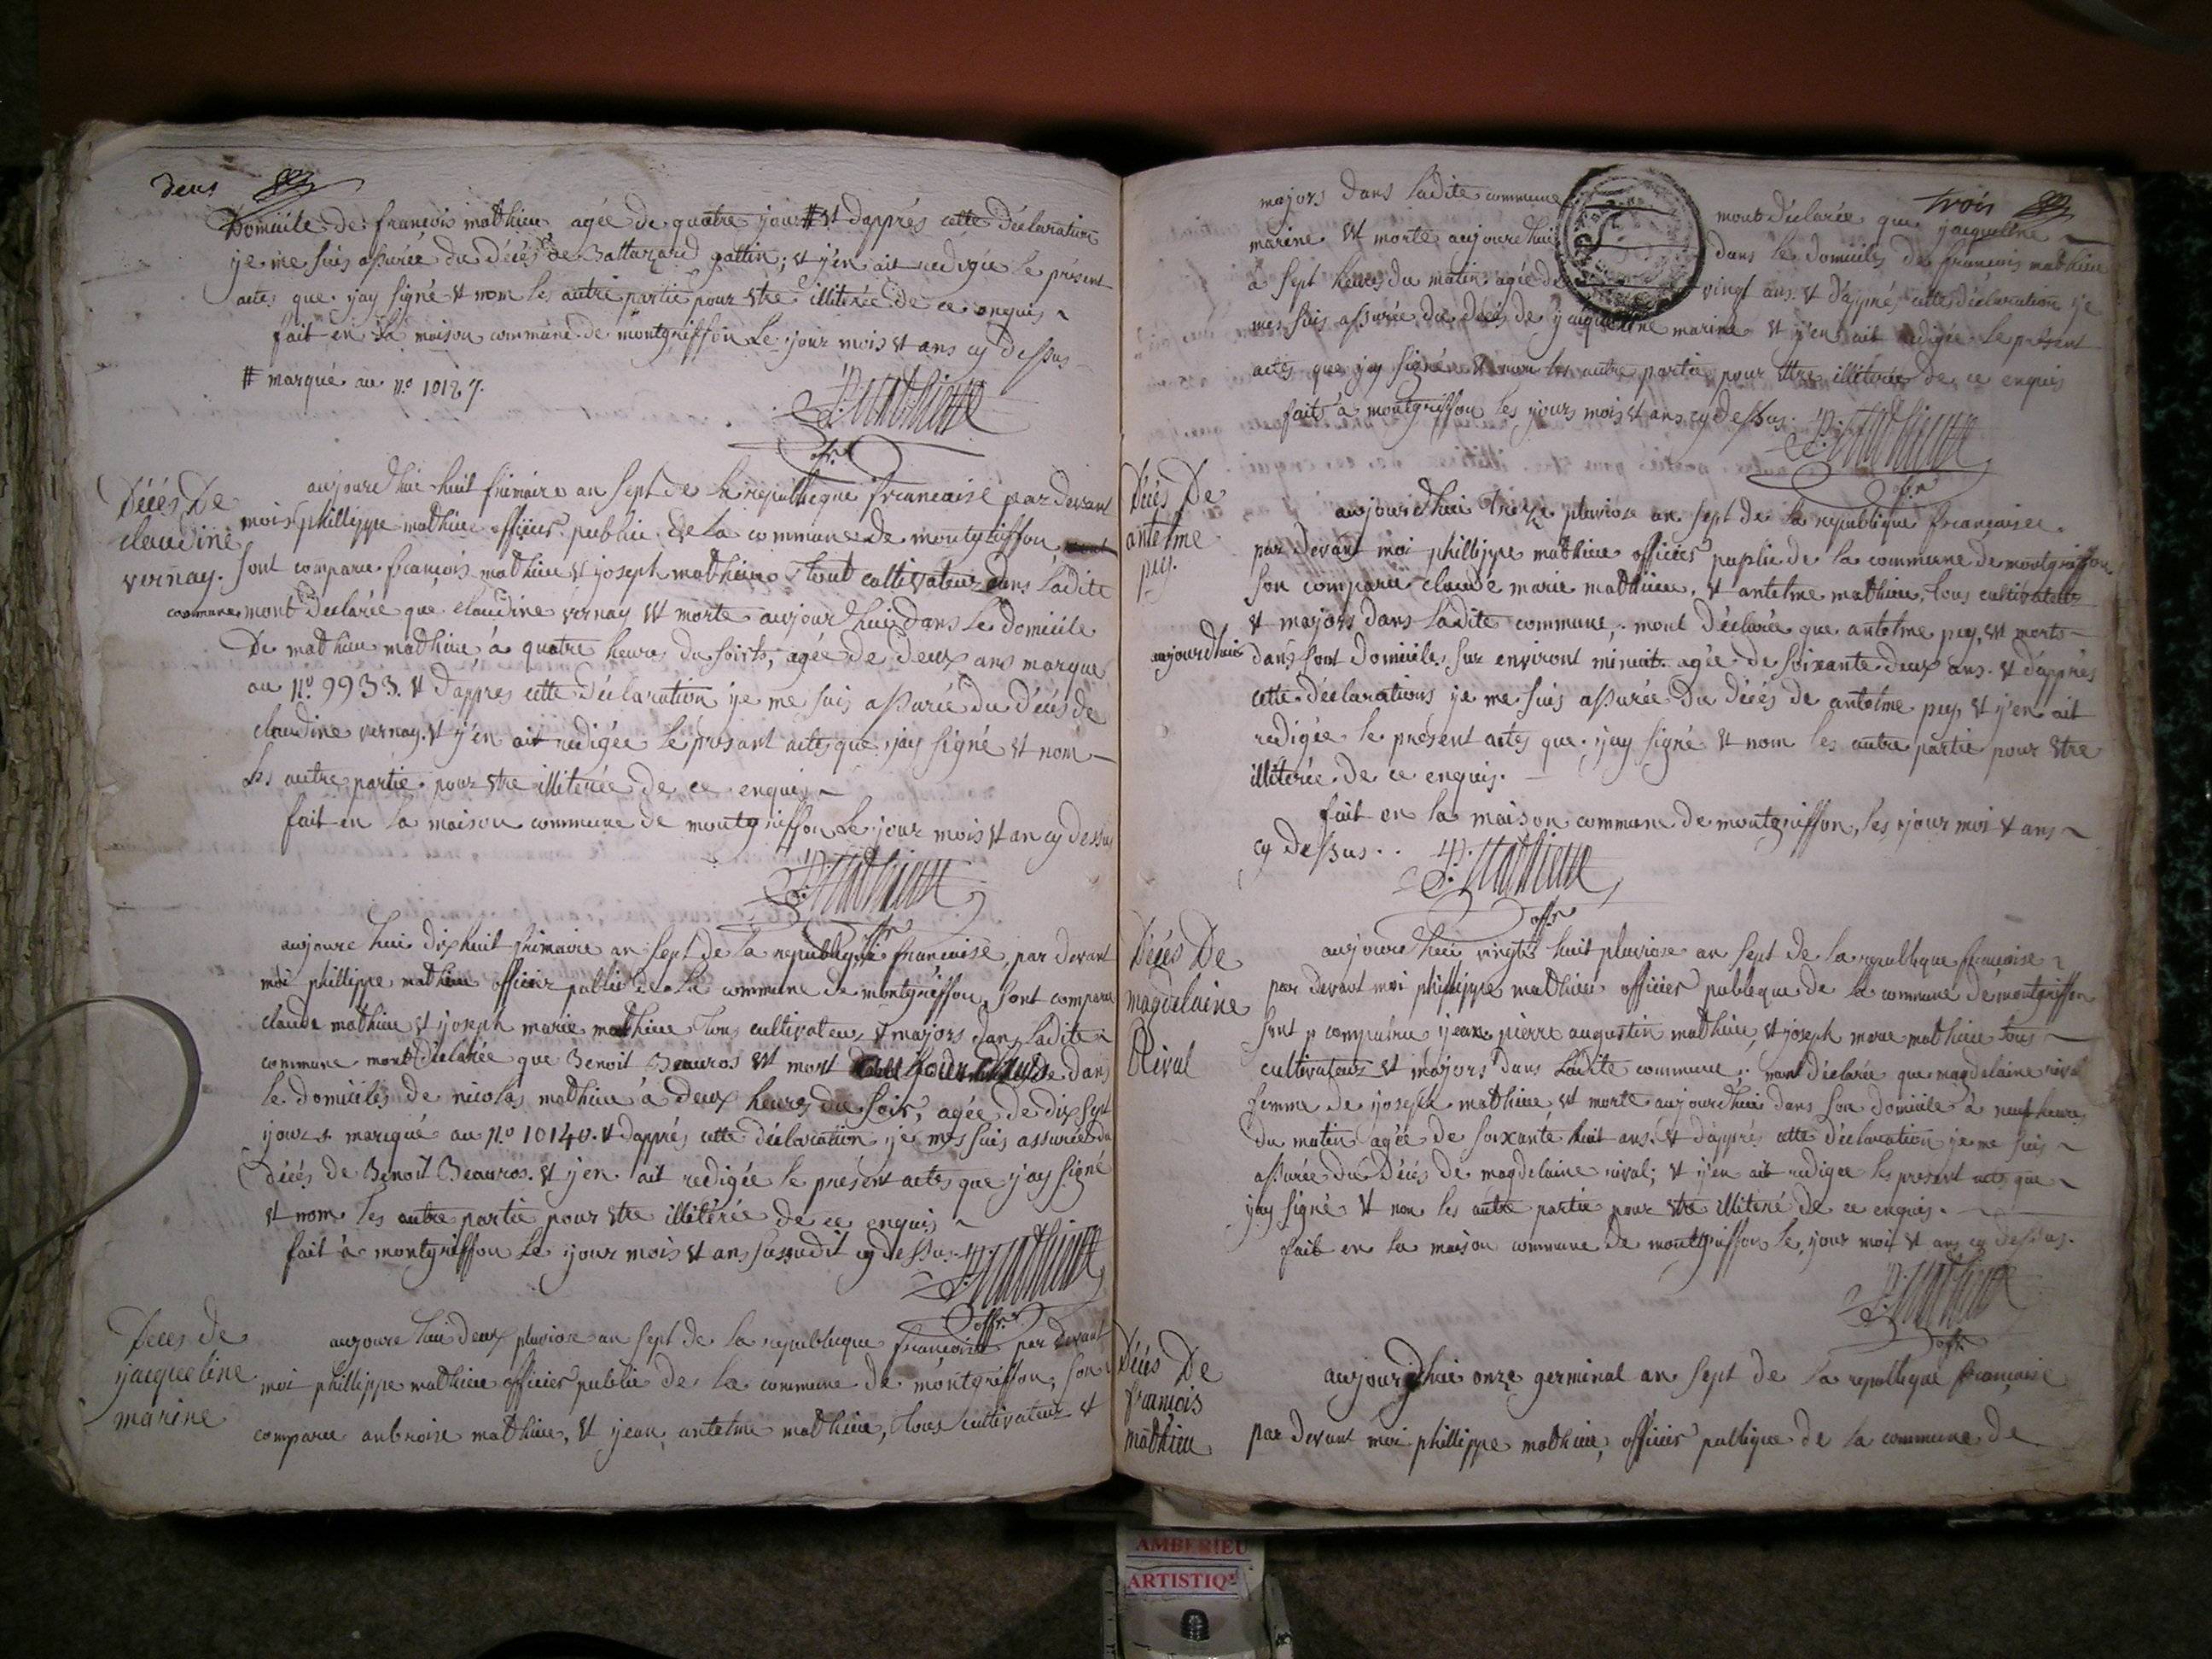 deux
Domicile de francois mathieu, agée de quatre jour # et d'apprés cette déclaration
je me suis assurée du décés de Baltazard gattin; et j'en ait redigée le présent
actes que j'ay signé et nom les autre partie pour etre illiterée de ce enquis
fait en la maison commune de montgriffon le jour mois et ans cy dessus
# marqué au n.o 10127.
P. Mathieu
offr.
Décés De
claudine
vernay.
aujourd'huie huit frimaire an sept de la republicque francaise par devant
mois phillippe mathieu officier public de la commune de montgriffon
sont comparu francois mathieu et joseph mathieu tout cultivateur dans ladite
commune mont déclarée que claudine vernay et morte aujourd'huie dans le domicile
De mathieu mathieu à quatre heures du soirs, agée de deux ans marque
au n.o 9933. et d'appres cette déclaration je me suis assurée du décés de
claudine vernay. et j'en ait redigée le présant actes que j'ay signé et nom
les autre partie pour etre illiterée de ce enquis
fait en la maison commune de montgriffon le jour mois et an cy dessus
P. Mathieu
offr
aujourd hui dixhuit frimaire an sept de la republique francaise, par devant
moi phillippe mathieu officier public de la commune de montgriffon sont comparu
claude mathieu et joseph marie mathieu tous cultivateur et majors dans ladite
commune mont déclarée que Benoit Beauros et mort dans
le domiciles de nicolas mathieu à deux heures du soir, agée de dix sept
jours marqué au n.o 10140. et d'apprés cette déclaration je mes suis assurée du
décés de Benoit Beauros. et j'en ait redigée le présent actes que j'ay signé
et nom les autre partie pour etre illitérée de ce enquis
fait à montgriffon le jour mois et an sussudit cy dessus. P. Mathieu
offr.
Deces de
jacqueline
marine
aujourd hui deux pluviose an sept de la republicque francoise par devant
moi phillippe mathieu officier public de la commune de montgriffon, son
comparu anbroise mathieu, et jean antelme mathieu, tous cultivateur et
trois
majors dans ladite commune mont déclarée que jacqueline
marine et morte aujourd huie dans le domicile de francois mathieu
à sept heures du matin agée de vingt ans. et d'apprés cette déclaration je
mes suis assurée du décés de jacqueline marine et j'en ait redigée le présent
actes que j'ay signé et nom les autre partie pour etre illiterée de ce enquis
fait à montgriffon les jours mois et ans cy dessus. P. Mathieu
offr
Décés De
antelme
pey.
aujourd'huie treize pluviose an sept de la republique francaisee.
par devant moi phillippe mathieu officier puplic de la commune de montgriffon
son comparu claude marie mathieu, et antelme mathieu, tous cultivateur
et majors dans ladite commune, mont déclarée que antelme pey, et morts
aujourdhuie dans sont domicile sur environt minuit agée de soixante deux ans. et d'apprés
cette déclarations je me suis assurée du décés de antelme pey, et j'en ait
redigée le présent actés que j'ay signé et nom les autre partie pour etre
illiterée de ce enquis.
fait en la maison commune de montgriffon, les jour moi et ans
cy dessus.. P. Mathieu
offr
Décés De
magdelaine
Rival
aujourd huie vingts huit pluviose an sept de la republique françoise
par devant moi phillippe mathieu officier publique de la commune de montgriffon
sont comparu jean pierre augustin mathieu, et joseph marie mathieu tous
cultivateur et majors dans ladite commune, mont déclarée que magdelaine rival
femme de joseph mathieu, et morte aujourdhuie dans son domicile à neuf heures
du matin agée de soixante huit ans. et d'apprés cette déclaration je me suis
assurée du Décés de magdelaine rival; et j'en ait redigée les present actes que
j'ay signé et non les autre partie pour etre illiteré de ce enquis.
fait en la maison commune de montgriffon le jour mois et ans cy dessus.
P. Mathieu
offr
Décés De
francois
mathieu
aujourdhuie onze germinal an sept de la republique francaise
par devant moi phillippe mathieu, officier publique de la commune de
AMBERIEU
ARTISTIQ